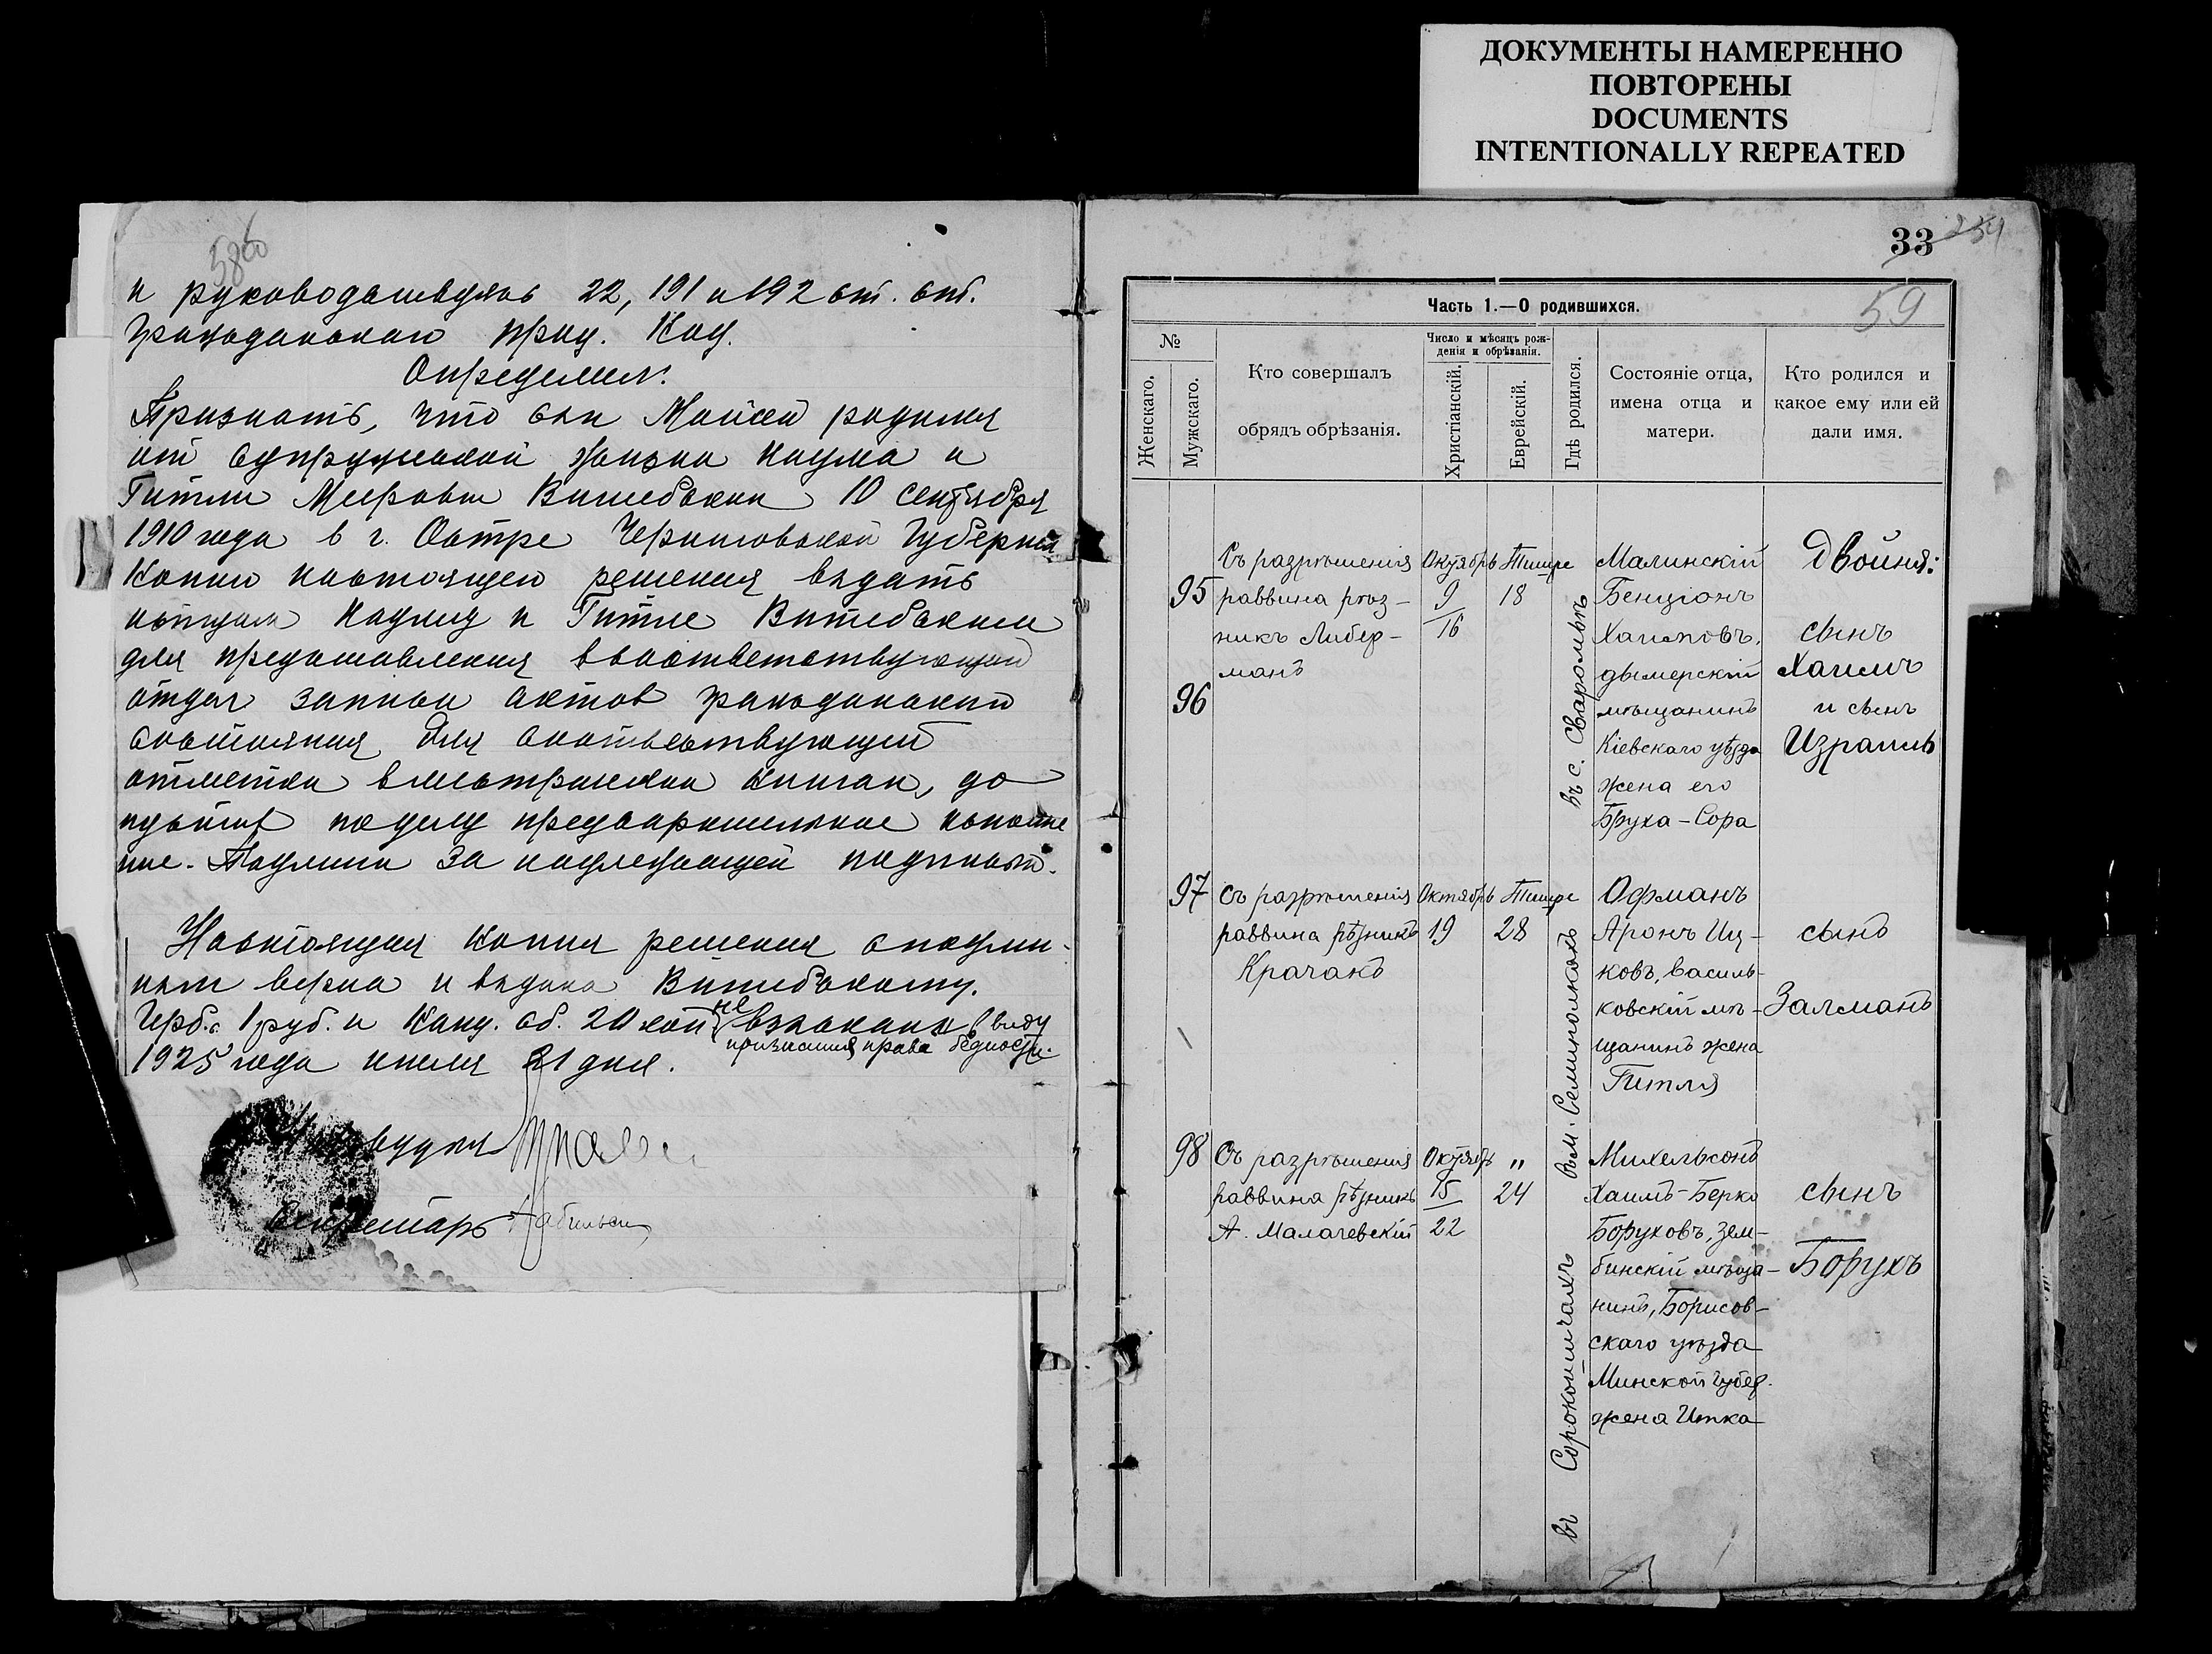 ДОКУМЕНТЫ НАМЕРЕННО
ПОВТОРЕНЫ
DOCUMENTS
INTENTIONALLY REPEATED
и руководствуясь 22, 191 и 192 ст. ст.
Гражданского Проц. Код.
Определил:
Признать, что сын Моисей родился
от супружеской жизни Наума и
Гитли Мееровы Витебских 10 сентября
1910 года в г. Остре Черниговской Губернии
Копию настоящего решения выдать
истцам Науму и Гитле Витебским
для предоставления в соответствующий
отдел записи актов гражданского
состояния для соответствующей
отметки в метрических книгах, до
пустив по делу предварительное исполне
ние. Подлинн за надлежащей подписью.
Настоящая копия решения с подлин-
ным верна и выдана Витебскому.
Герб. с. 1 руб. и Канц. сб. 20 коп не взыскан в виду
признания права бедности.
1925 года июля 21 дня.
Секретарь
33
59
Часть 1.—О родившихся.
№
Женскаго.
Мужскаго.
Кто совершалъ
обрядъ обрѣзанія.
Число и мѣсяцъ рож-
денія и обрѣзанія.
Христіанскій.
Еврейскій.
Гдѣ родился.
Состояніе отца,
имена отца и
матери.
Кто родился и
какое ему или ей
дали имя.
Съ разрѣшенія Октябрь Тишре Малинскій Двойня:
95 раввина рѣз- 9 18 Бенціонъ
никъ Либер- 16 Хаимовъ, сынъ
манъ дымерскій Хаимъ
96 мѣщанинъ и сынъ
Кіевскаго уѣзда Израиль
жена его
Бруха-Сора
въ с. Сваромьѣ
97 Съ разрѣшенія Октябрь Тишре Офманъ
раввина рѣзникъ 19 28 Аронъ Иц- сынъ
Крачакъ ковъ, василь-
ковскій мѣ- Залманъ
щанинъ жена
Гитля
въ м. Семиполкахъ
98 Съ разрѣшенія Октябрь " Михельсонъ
раввина рѣзникъ 15 24 Хаимъ-Берко сынъ
А. Малачевскій 22 Боруховъ, зем-
бинскій мѣща- Борухъ
нинъ, Борисов-
скаго уѣзда
Минской губер.
жена Итка
въ Сорокошичахъ